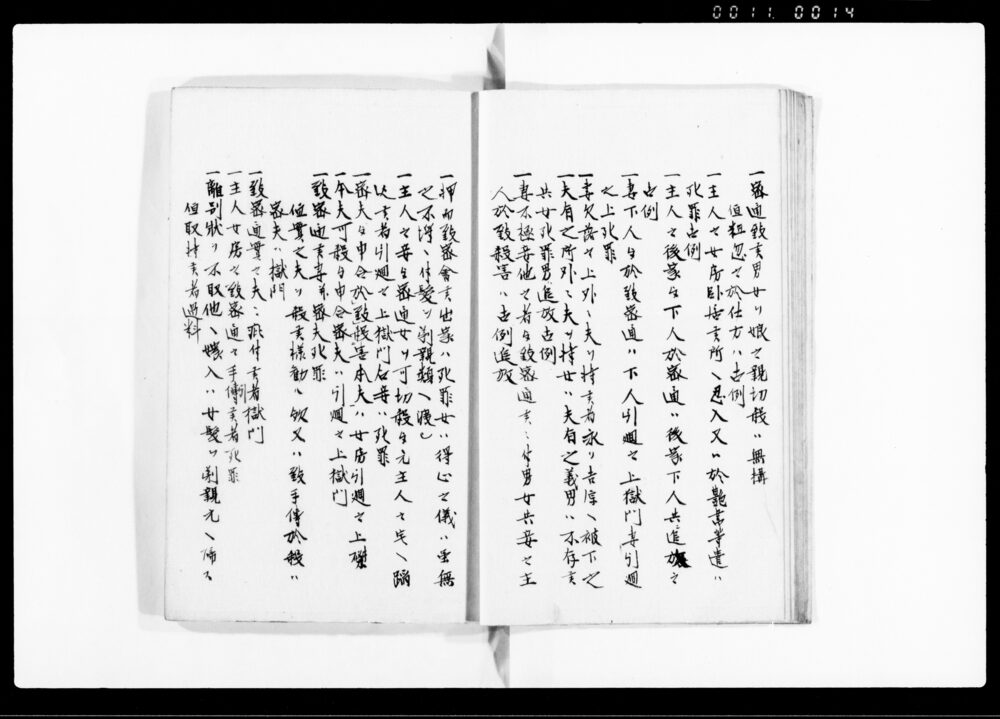 0011 0014
一密通致責男女ﾘ娘之親切殺ﾊ無構
但粗忽之於仕方ﾊ古例
一主人之女房臥居言所ヘ忍入又ﾊ於艶書等遣ﾊ
死罪古例
一主人之後家与下人於密通ﾊ後家下人共追放之
古例
一妻下人与於致密通ﾊ下人引廻之上獄門妻引廻
之上死罪
一妻欠落之上外ヘ夫ﾘ持言者永ﾘ吉原ヘ被下之
一夫有之所外ヘ夫ﾘ持女ﾊ夫有之義男ﾊ不存言
共女死罪男追放古例
一妻不極妾他之者与致密通言ﾊ男女共妾之主
人於致殺害ﾊ古例追放
一押而致密會言出家ﾊ死罪女ﾊ得心之儀ﾊ無
之不得ﾊ付髪ﾘ剃親類ヘ渡
一主人之妾与密通女ﾘ可切殺与元主人之宅ヘ踏
込言者引廻之上獄門右妾ﾊ死罪
一密夫与申合於致殺害本夫ﾊ女房引廻之上磔
一本夫可殺与申合密夫ﾊ引廻之上獄門
一致密通言妻并密夫死罪
但實之夫ﾘ殺言様勧ﾊ欤又ﾊ致手傳於殺ﾊ
密夫ﾊ獄門
一致密通實之夫ヘ疵付言者獄門
一主人女房之致密通之手傳言者死罪
一離別状ﾘ不取他ヘ嫁入ﾊ女髪ﾘ剃親元ヘ帰ス
但取持言者過料